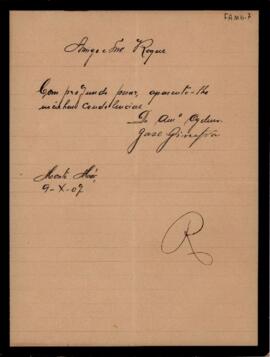 FAMB-7
Amigo e Snr Roque
Com profundo pesar, apresento-lhe
minhas condolencias
Do Amº
José
Monte Mór,
9-X-07
R